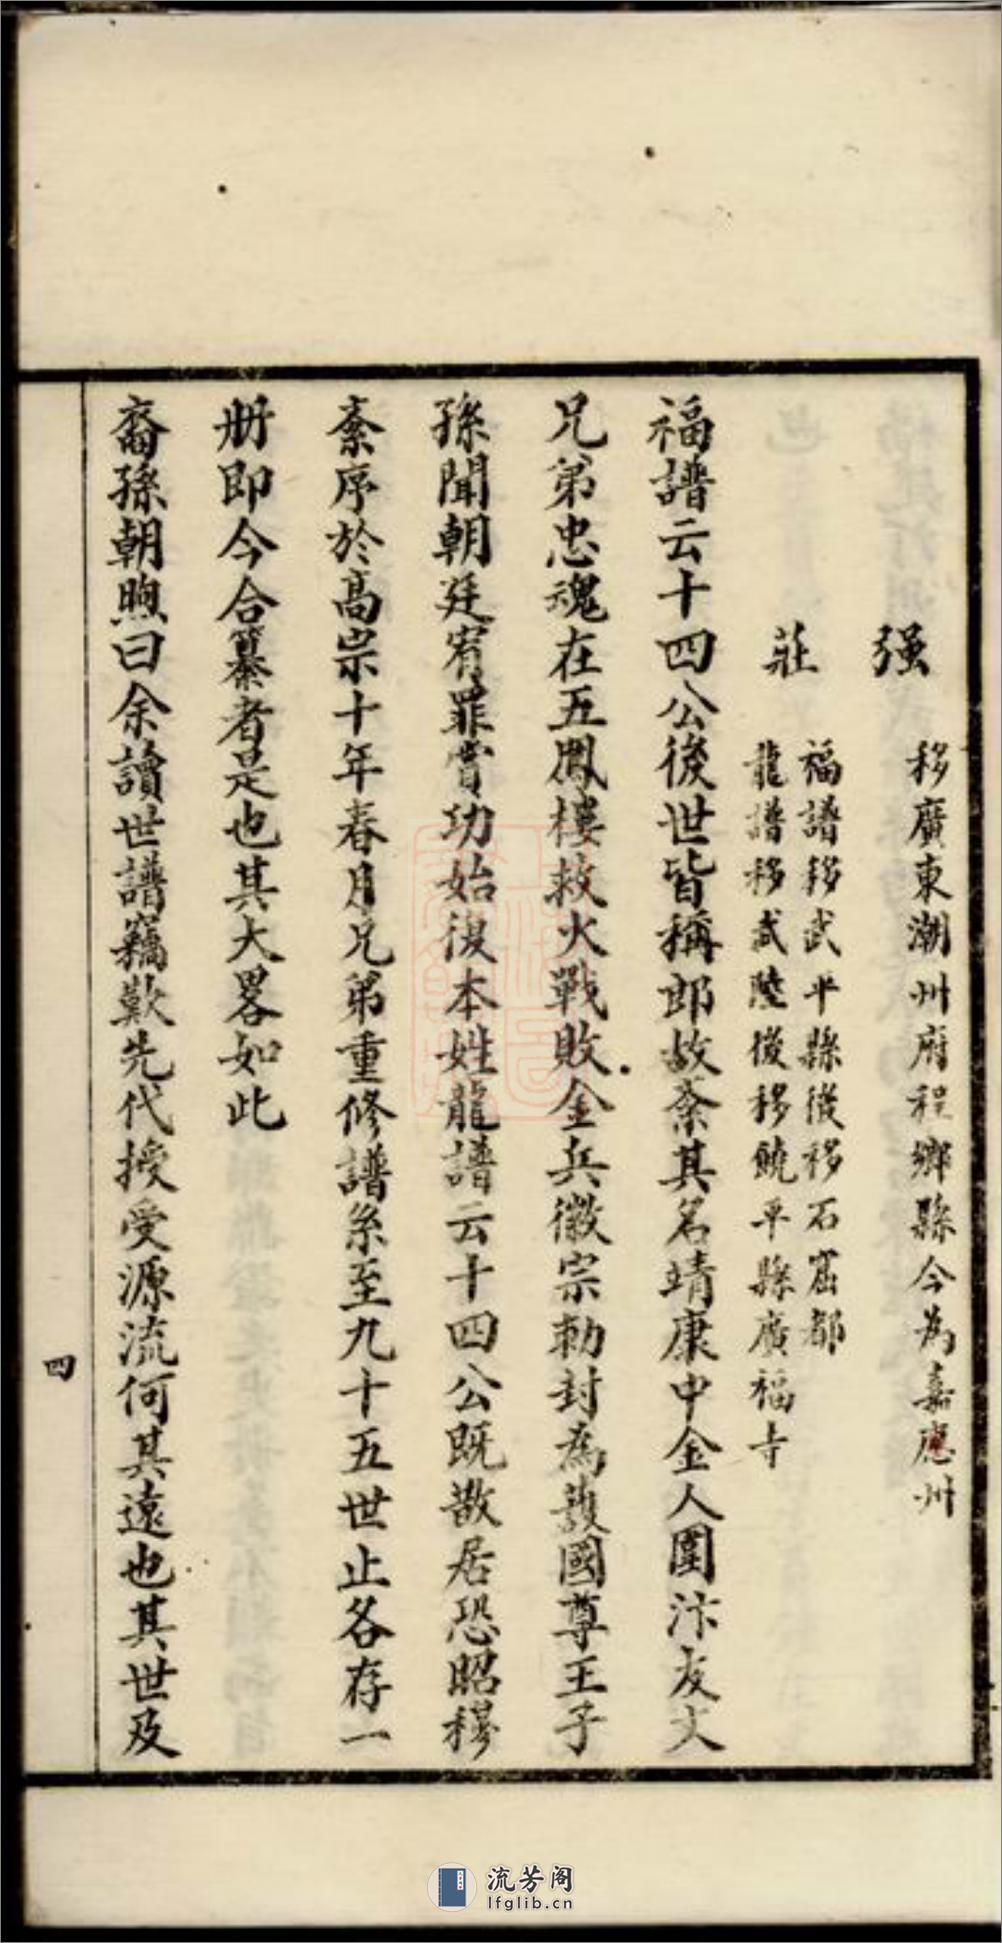 强 移廣東潮州府程鄉縣今為嘉應州
莊 福譜移武平縣後移石窟都
龍譜移武陸後移饒平縣廣福寺
福譜云十四公後世皆稱郎故紊其名靖康中金人圍汴友文
兄弟忠魂在五鳳樓救火戰敗金兵徽宗勅封為護國尊王子
孫聞朝廷宥罪賞功始復本姓龍譜云十四公既散居恐昭穆
紊序於高宗十年春月兄弟重修譜系至九十五世止各存一
册即今合纂者是也其大畧如此
裔孫朝煦曰余讀世譜竊歎先代授受源流何其遠也其世及
四
流芳阁
lfglib.cn